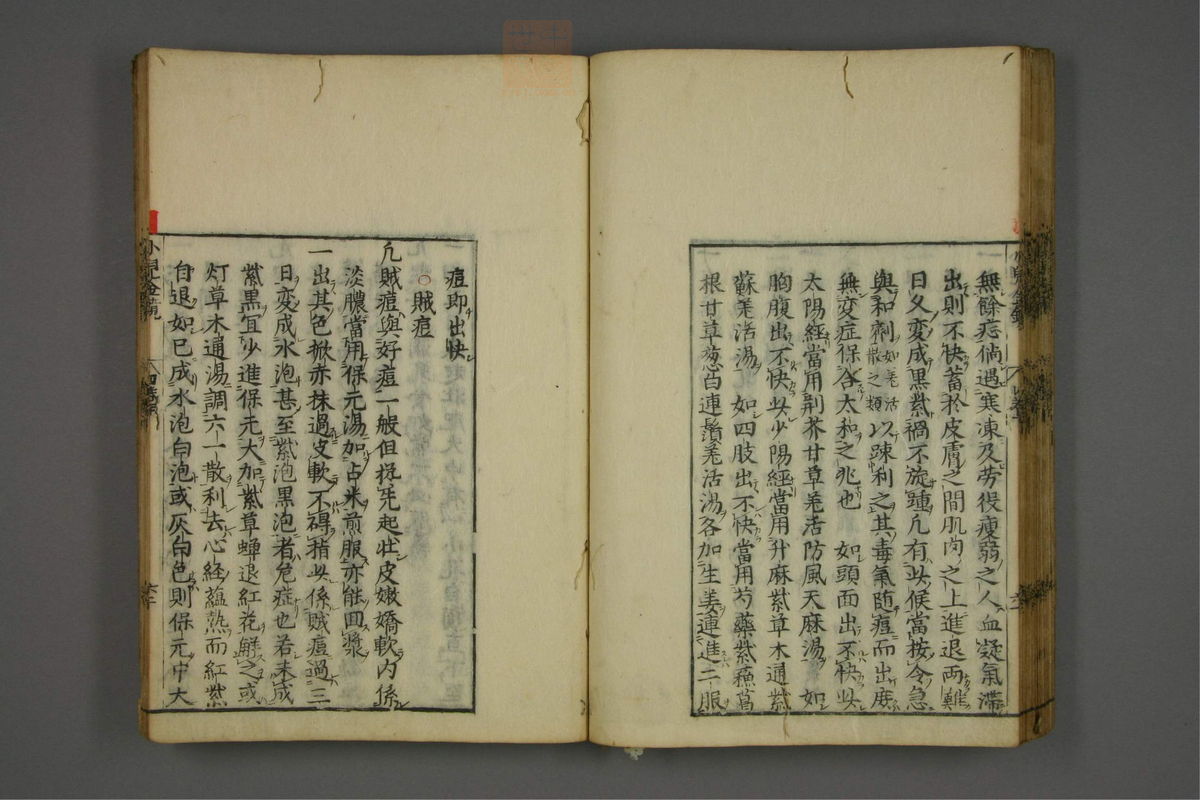 無餘痣倘遇寒凍及劳役瘦弱之人血凝氣滞
出則不快蓄扵皮膚之間肌肉之上進退両難
日久変成黒紫禍不旋踵凢有此候當按令急
與和劑如羌活散之類以疎利之其毒氣随痘而出庻
無変症保合太和之兆也 如頭面出不快此
太陽經當用荆芥甘草羌活防風天麻湯 如
胸腹出不快此少陽經當用升麻紫草木通紫
蘇羌活湯 如四肢出不快當用芍藥紫蘓葛
根甘草葱白連鬚羌活湯各加生姜連進二服
痘即出快
○賊痘
凢賊痘與好痘一般但掟先起壮皮嫩嬌軟内係
淡膿當用保元湯加占米煎服亦能囬漿
一出其色掀赤抹過皮軟不碍指此係賊痘過三
日変成水泡甚至紫泡黒泡者危症也若未成
紫黒宜少進保元大加紫草蟬退紅花觧之或
灯草木通湯調六一散利去心経蕴熱而紅紫
自退如已成水泡白泡或灰白色則保元中大